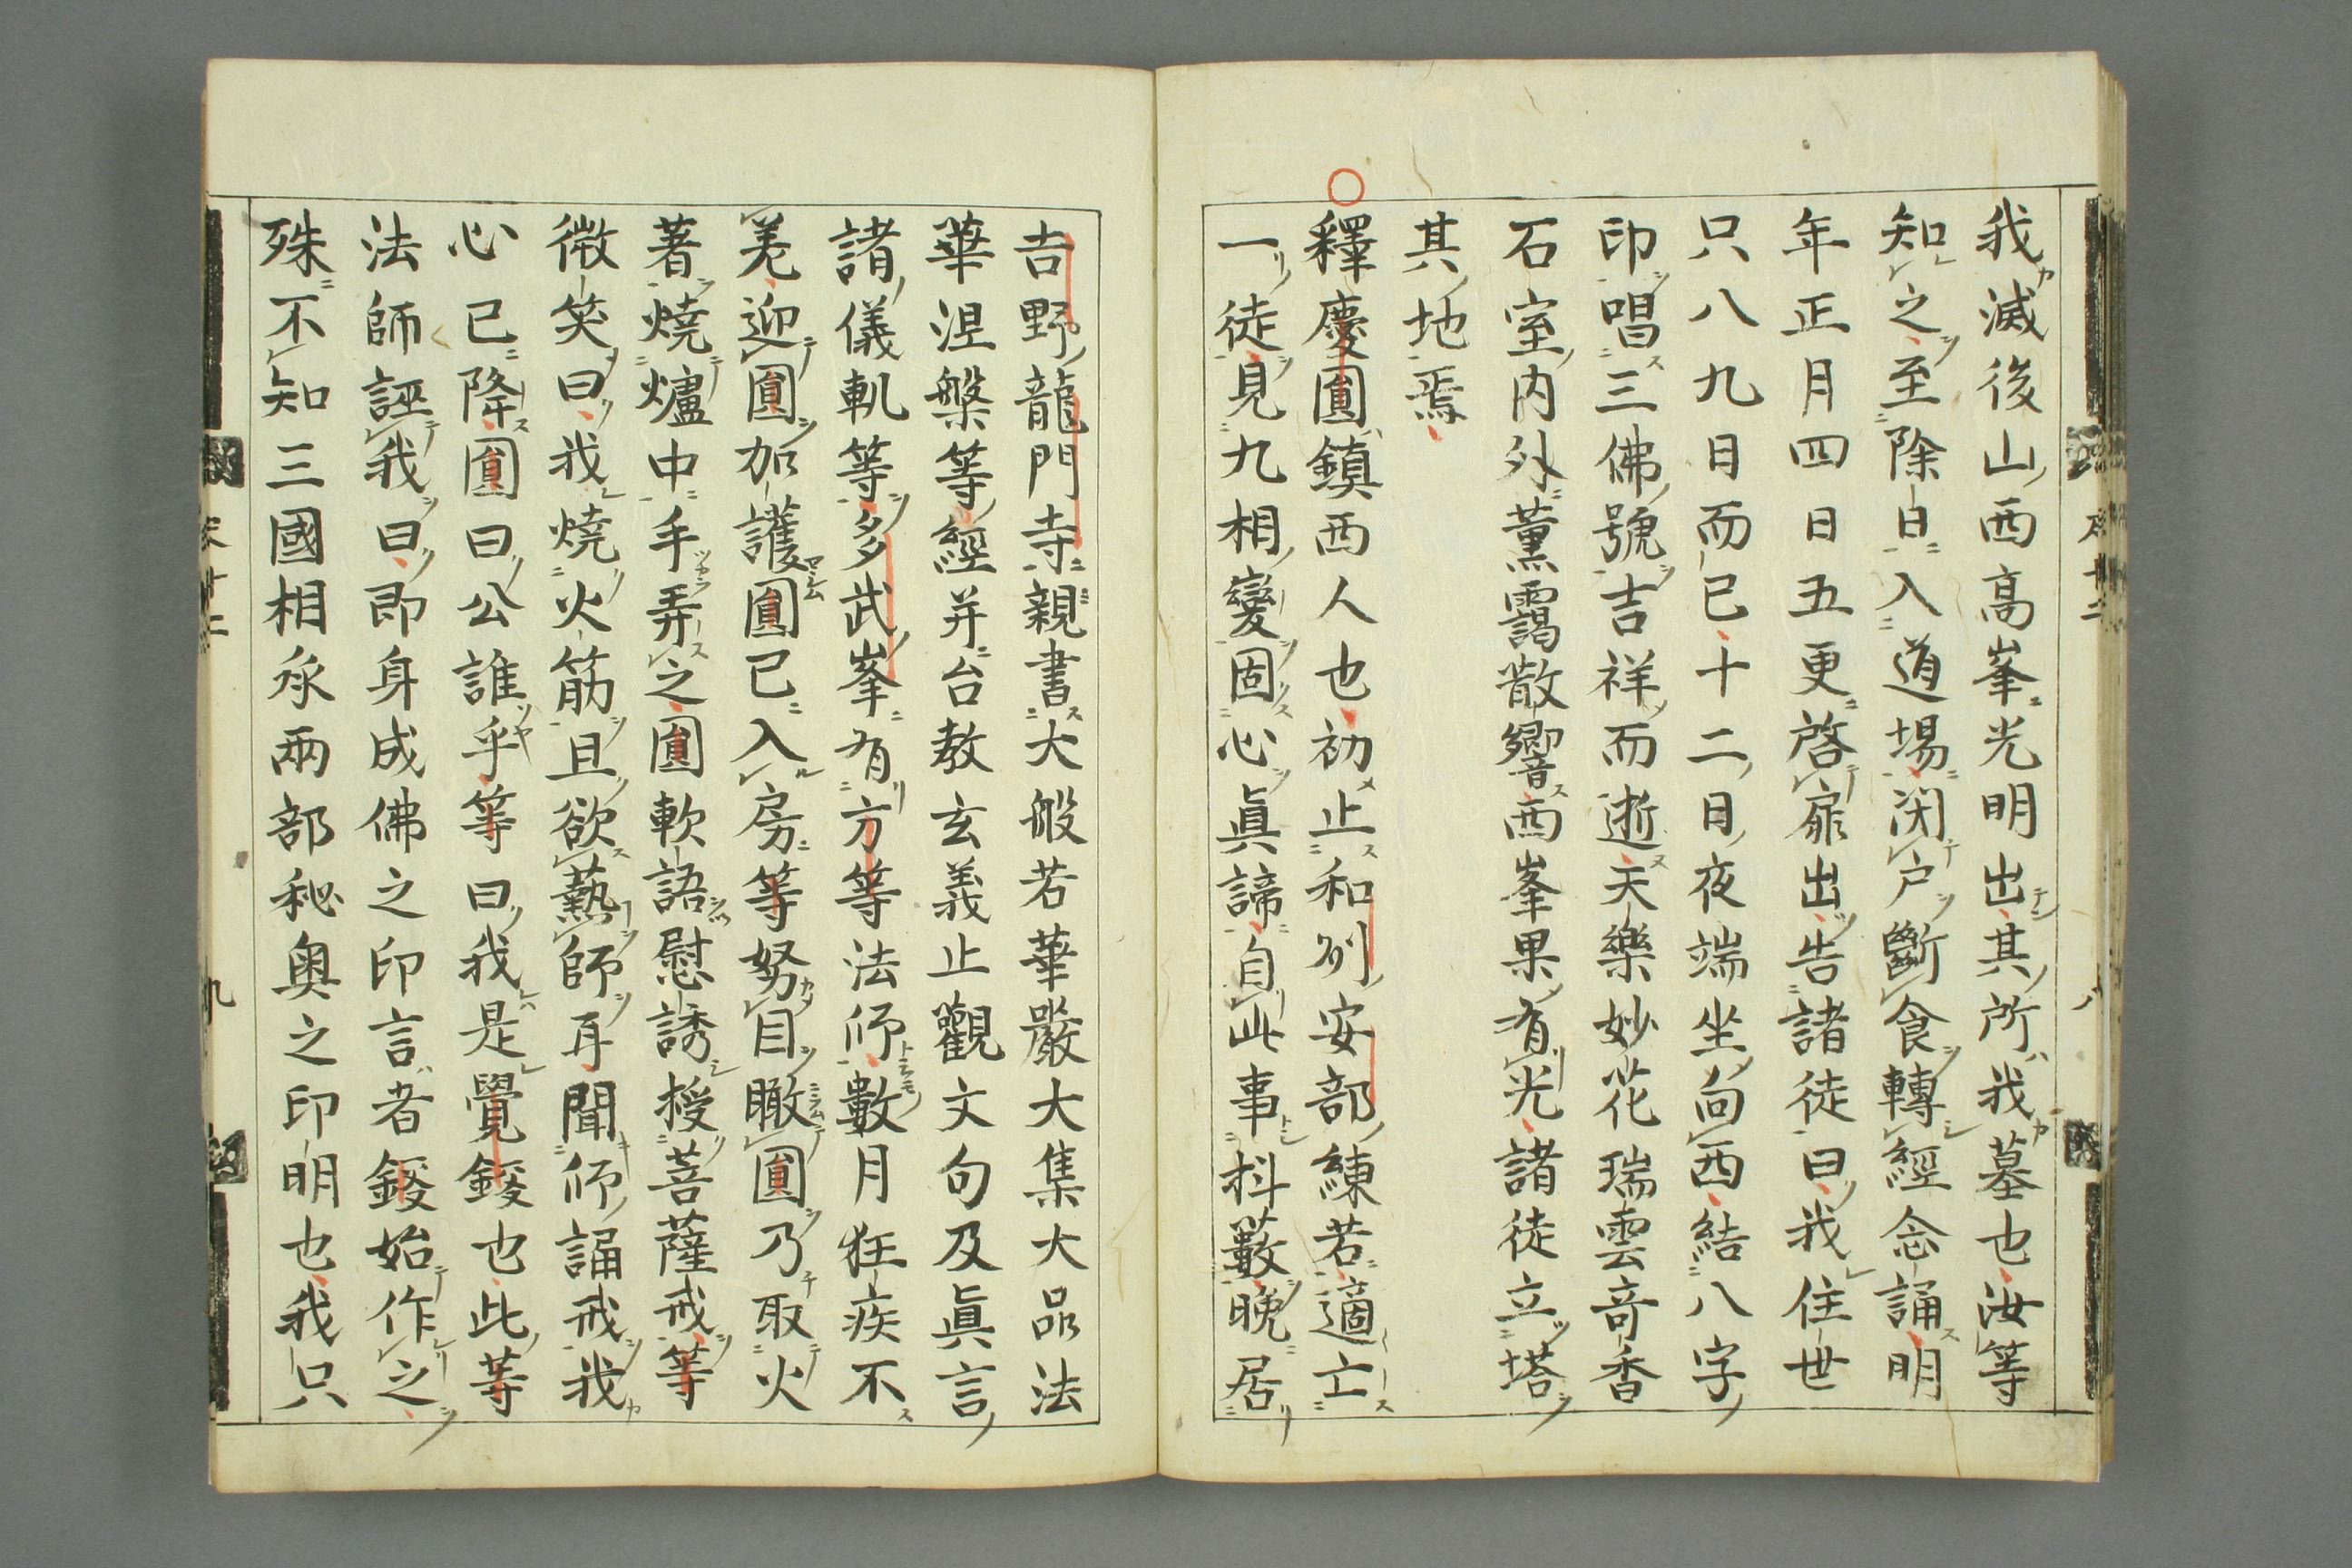 我滅後山西高峯光明出其所我墓也汝等
知之至除日入道場闭户斷食轉經念誦明
年正月四日五更啓扉出告諸徒曰我住世
只八九日而已十二日夜端坐向西結八字
印唱三佛號吉祥而逝天樂妙花瑞雲竒香
石室内外薰靄散響西峯果有光諸徒立塔
其地焉
釋慶圓鎮西人也初止和列安部練若適亡
一徒見九相變固心眞諦自此事抖藪晚居
吉野龍門寺親書大般若華嚴大集大品法
華涅槃等經并台教玄義止觀文句及眞言
諸儀軌等多武峯有方等法师數月狂疾不
羌迎圓加護圓已入房等努目瞰圓乃取火
著燒爐中手弄之圓軟語慰誘授菩薩戒等
微笑曰我燒火筋且欲爇師耳聞师誦戒我
心已降圓曰公誰乎等曰我是覺鑁也此等
法師誣我曰即身成佛之印言者鑁始作之
殊不知三國相承兩部秘奥之印明也我只